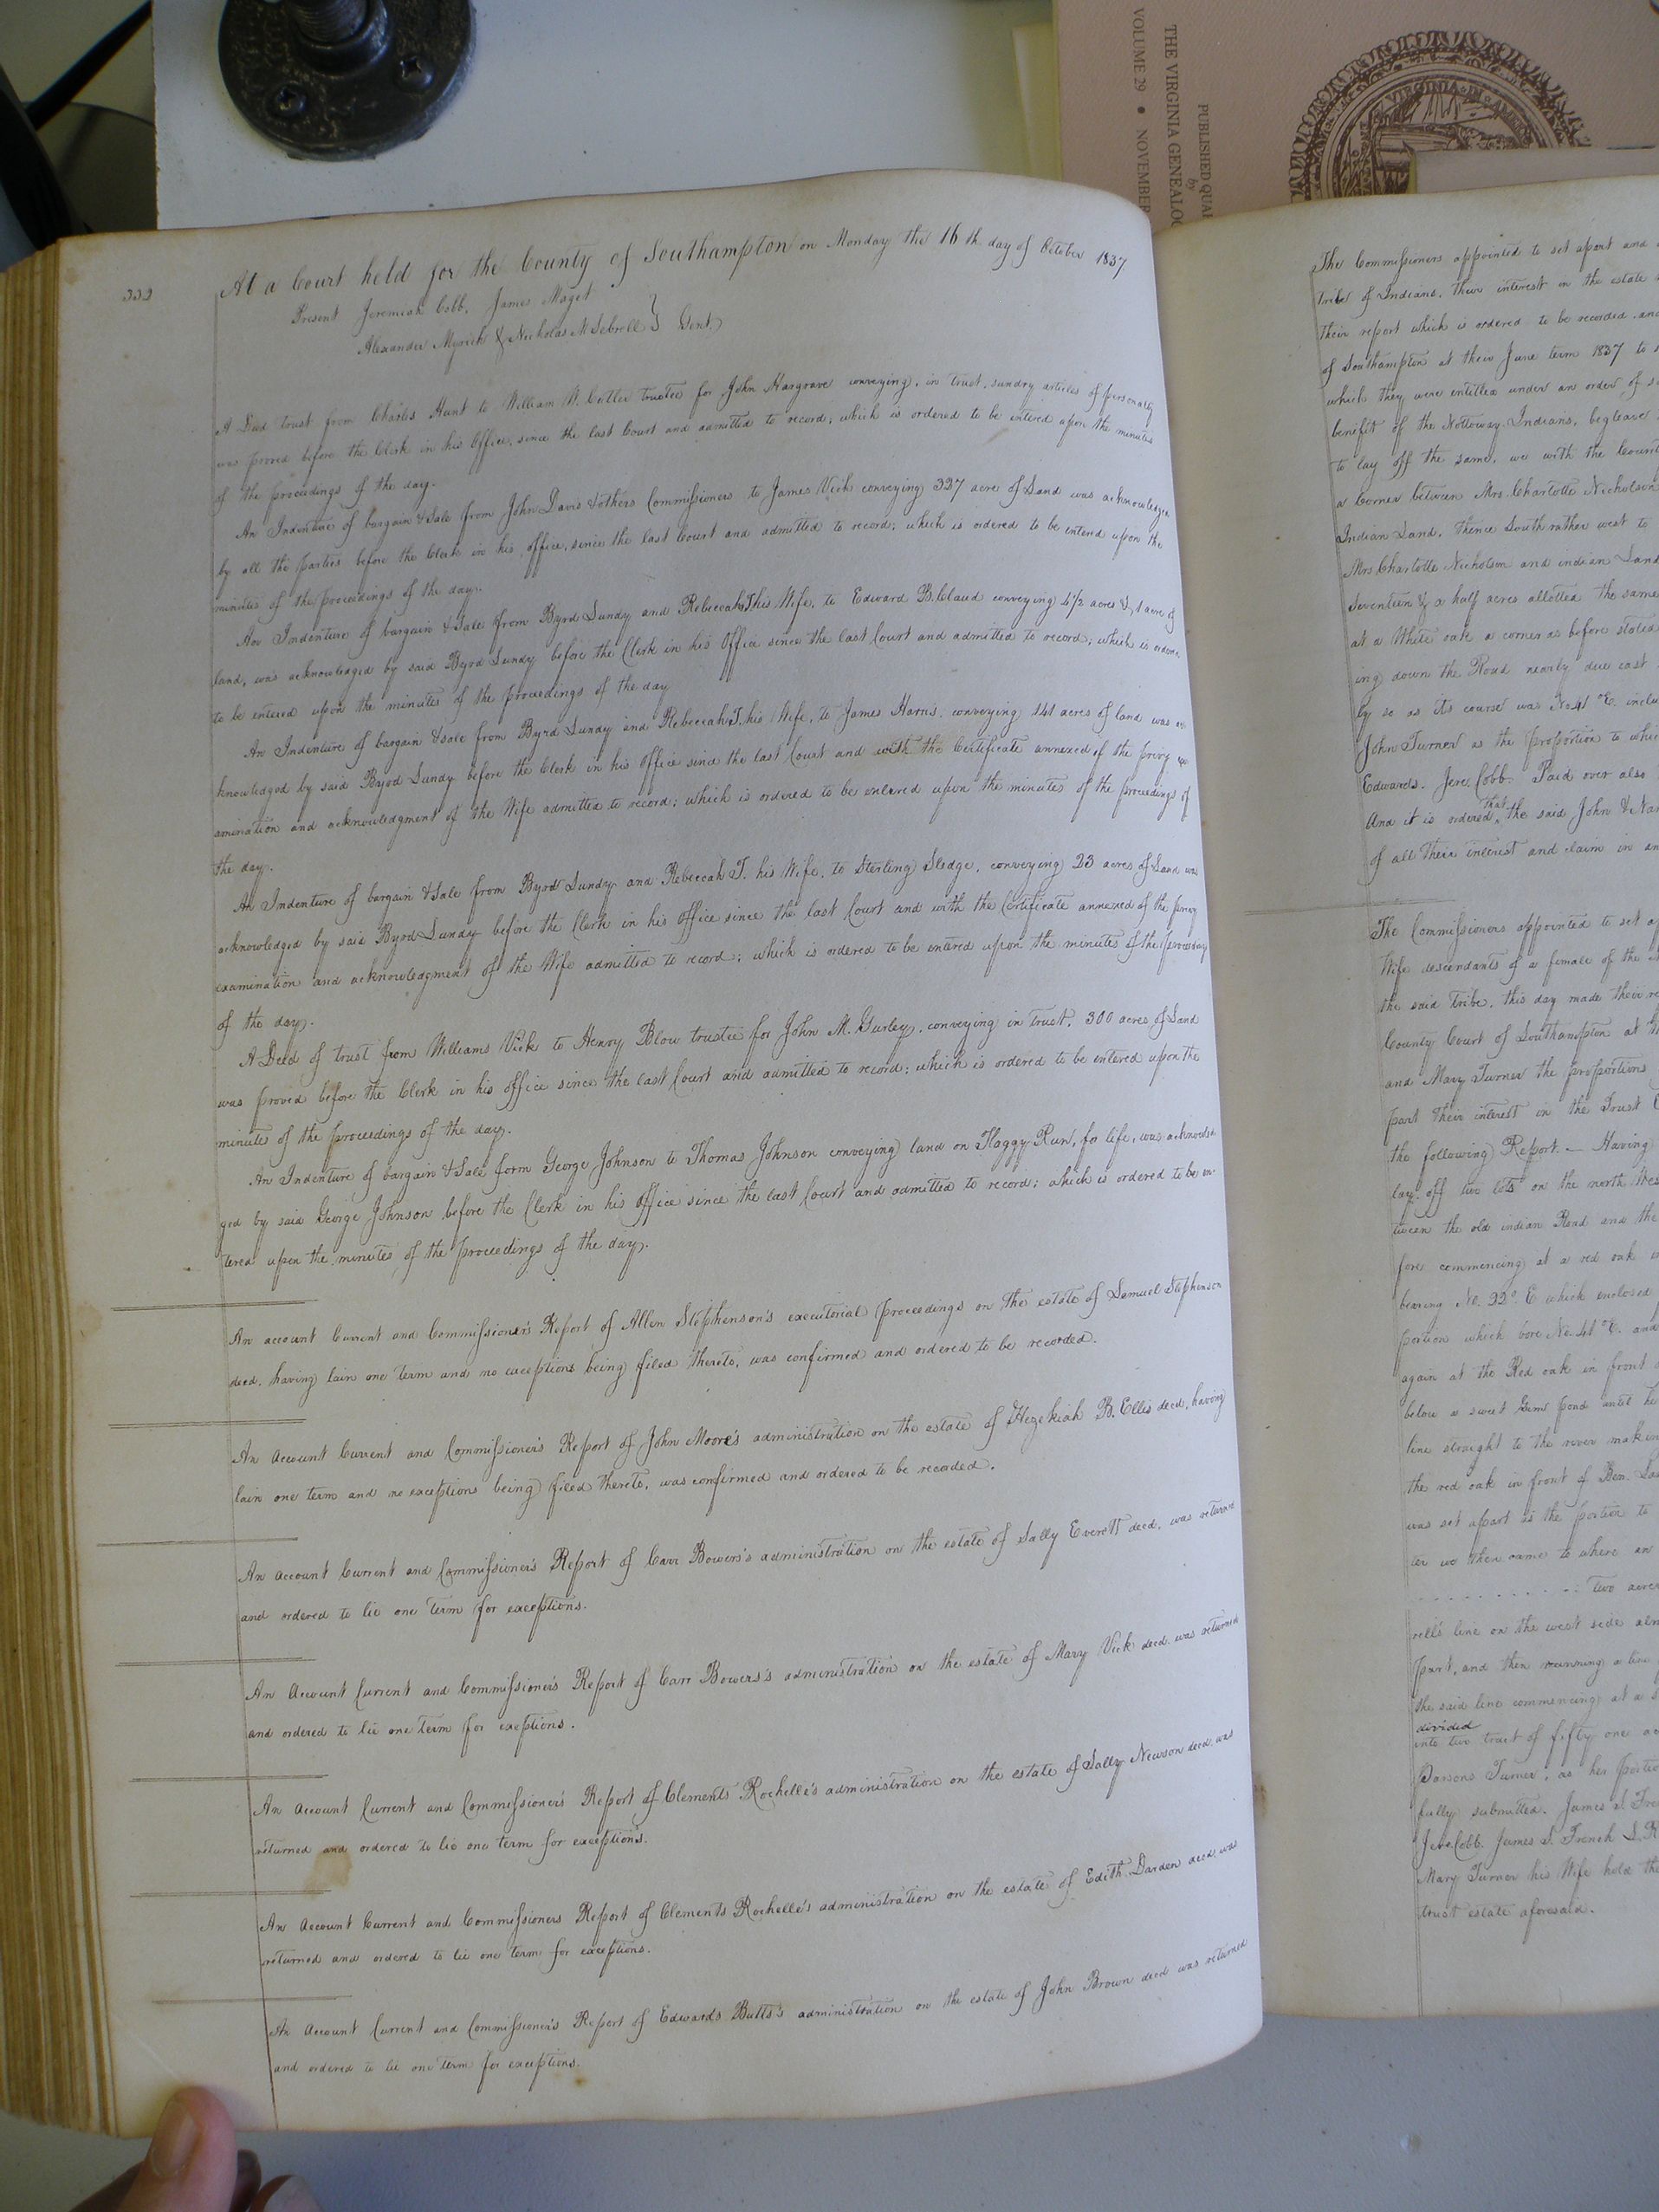 PUBLISHED QUA
by
THE VIRGINIA GENEALOG
VOLUME 29 • NOVEMBER
VIRGINIA IN A
332
At a Court held for the County of Southampton on Monday the 16th day of October 1837
Present Jeremiah Cobb, James Maget
Alexander Myrick & Nicholas M Sebrell } Gent.
A Deed trust from Charles Hunt to William W. Cotten trustee for John Hargrave conveying, in trust, sundry articles of personalty
was proved before the Clerk in his Office, since the last Court and admitted to record; which is ordered to be entered upon the minutes
of the proceedings of the day.
An Indenture of bargain & Sale from John Davis & others Commissioners to James Vick conveying 327 acre of Land was acknowledged
by all the parties before the Clerk in his office, since the last Court and admitted to record; which is ordered to be entered upon the
minutes of the proceedings of the day.
An Indenture of bargain & Sale from Byrd Lundy and Rebeccah T. his Wife, to Edward B. Claud conveying 4½ acres & 1 acre of
land, was acknowledged by said Byrd Lundy before the Clerk in his Office since the last Court and admitted to record; which is ordered
to be entered upon the minutes of the proceedings of the day
An Indenture of bargain & sale from Byrd Lundy and Rebeccah T. his Wife, to James Harris, conveying 141 acres of land was ac
knowledged by said Byrd Lundy before the Clerk in his Office since the last Court and with the Certificate annexed of the privy ex
amination and acknowledgment of the Wife admitted to record; which is ordered to be entered upon the minutes of the proceedings of
the day.
An Indenture of bargain & Sale from Byrd Lundy and Rebeccah T. his Wife, to Sterling Sledge, conveying 23 acres of Land was
acknowledged by said Byrd Lundy before the Clerk in his office since the last Court and with the Certificate annexed of the privy
examination and acknowledgment of the Wife admitted to record; which is ordered to be entered upon the minutes of the proceedings
of the day.
A Deed of trust from Williams Vick to Henry Blow trustee for John M. Gurley, conveying in trust, 300 acres of Land
was proved before the Clerk in his office since the last Court and admitted to record; which is ordered to be entered upon the
minutes of the proceedings of the day.
An Indenture of bargain & Sale form George Johnson to Thomas Johnson conveying land on Flaggy Run, for life, was acknowled
ged by said George Johnson before the Clerk in his Office since the last Court and admitted to record; which is ordered to be en
tered upon the minutes of the proceedings of the day.
An account Current and Commissioner's Report of Allen Stephenson's executorial proceedings on the estate of Samuel Stephenson
decd. having lain one term and no exceptions being filed thereto, was confirmed and ordered to be recorded.
An account Current and Commissioner's Report of John Moore's administration on the estate of Hezekiah B. Ellis decd, having
lain one term and no exceptions being filed thereto, was confirmed and ordered to be recorded.
An account Current and Commissioner's Report of Carr Bowers's administration on the estate of Sally Everett decd. was returned
and ordered to lie one term for exceptions.
An Account Current and Commissioner's Report of Carr Bowers's administration on the estate of Mary Vick decd was returned
and ordered to lie one term for exceptions.
An account Current and Commissioner's Report of Clements Rochelle's administration on the estate of Sally Newsom decd was
returned and ordered to lie one term for exceptions.
An account Current and Commissioners Report of Clements Rochelle's administration on the estate of Edith Darden decd. was
returned and ordered to lie one term for exceptions.
An Account Current and Commissioner's Report of Edwards Butts's administration on the estate of John Brown decd was returned
and ordered to lie one term for exceptions.
The Commissioners appointed to set apart and
tribe of Indians, their interest in the estate
their report which is ordered to be recorded and
of Southampton at their June term 1837 to
which they were entitled under an order of
benefit of the Nottoway Indians, beg leave
to lay off the same, we with the Count
a Corner between Mrs. Charlotte Nicholson
Indian Land. thence South rather west to
Mrs Charlotte Nicholson and indian Land
Seventeen & a half acres allotted the same
at a White oak a corner as before stated
ing down the Road nearly due east
by so as its course was No. 41° E. inclu
John Turner as the proportion to whic
Edwards. Jere. Cobb. Paid over also
And it is ordered that the said John & Nan
of all their interest and claim in an
The Commissioners appointed to set ap
Wife descendants of a female of the
the said tribe, this day made their re
County Court of Southampton at
and Mary Turner the proportions
part their interest in the Trust
the following Report. — Having
lay off two lots on the north Wes
tween the old indian Road and the
fore commencing at a red oak
bearing No. 32° E which enclosed
portion which bore No. 41° E. and
again at the Red oak in front
below a sweet Gum pond until
line straight to the river makin
the red oak in front of Ben.
was set apart as the portion to
ter we then came to where an
. . . . . . . . . . two acres
rell's line on the west side
part, and then running a line
the said line commencing at a
divided
into two tract of fifty one ac
Parsons Turner, as her portio
fully submitted. James S. Fre
Jere. Cobb. James S. French
Mary Turner his Wife hold the
trust estate aforesaid.